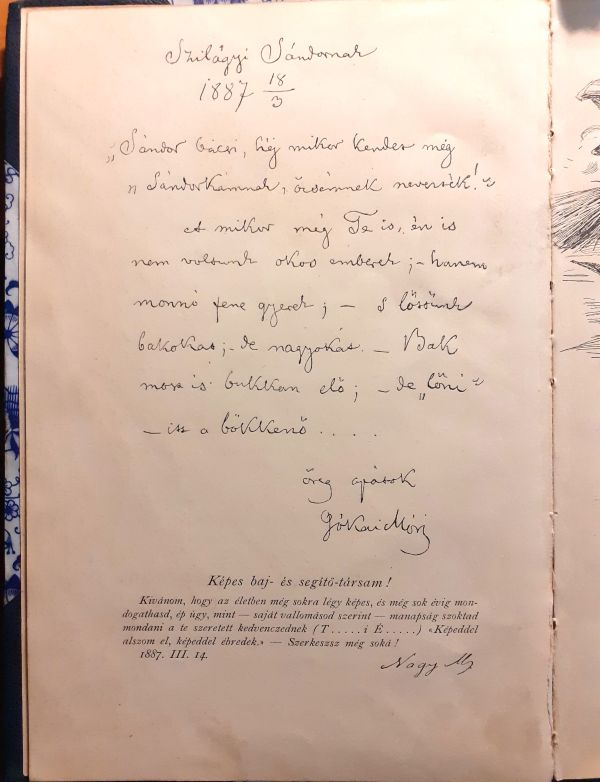 Szilágyi Sándornak
1887 18/3
„Sándor bácsi, héj mikor kendet még
„Sándorkámnak, öcsémnek nevezték!"
s mikor még Te is, én is
nem voltunk okos emberek; – hanem
monnó fene gyerek; – s lőttünk
bakokat; – de nagyokat. – Bak
most is bukkan elő; – de „lőni"
– itt a bökkenő . . . .
öreg apátok
Jókai Mór
Képes baj- és segítő-társam!
Kívánom, hogy az életben még sokra légy képes, és még sok évig mon-
dogathasd, ép úgy, mint — saját vallomásod szerint — manapság szoktad
mondani a te szeretett kedvenczednek (T.....i É.....) «Képeddel
alszom el, képeddel ébredek.» — Szerkeszsz még soká!
1887. III. 14.
Nagy M